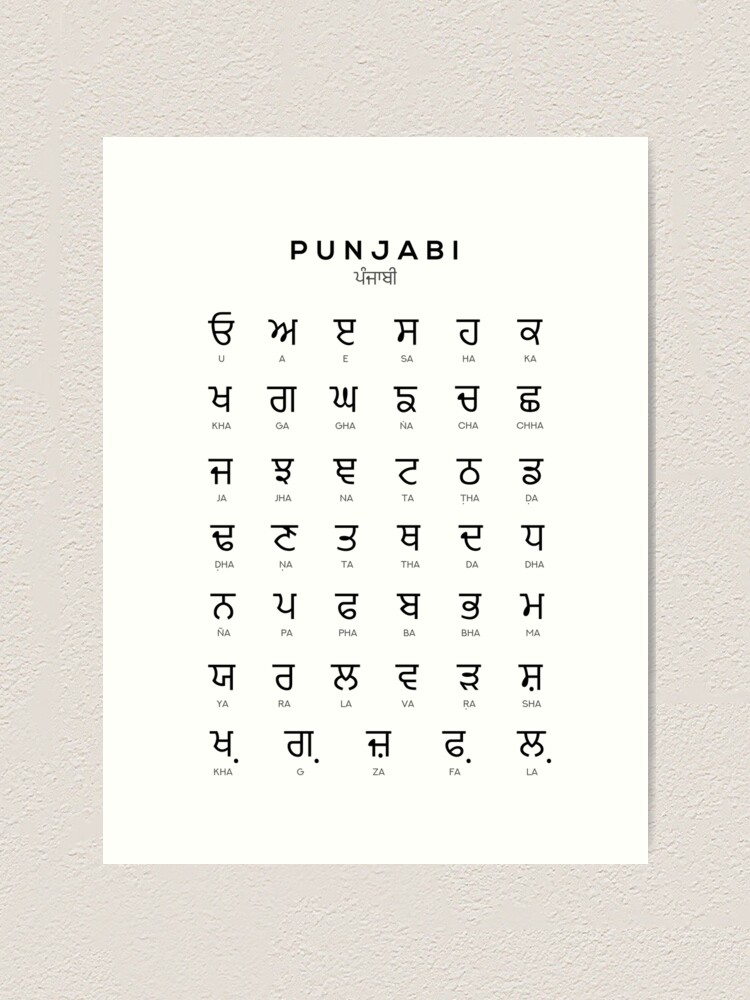 PUNJABI
ਪੰਜਾਬੀ
ੳ ਅ ੲ ਸ ਹ ਕ
U A E SA HA KA
ਖ ਗ ਘ ਙ ਚ ਛ
KHA GA GHA ṄA CHA CHHA
ਜ ਝ ਞ ਟ ਠ ਡ
JA JHA NA TA ṬHA ḌA
ਢ ਣ ਤ ਥ ਦ ਧ
ḌHA ṆA TA THA DA DHA
ਨ ਪ ਫ ਬ ਭ ਮ
ÑA PA PHA BA BHA MA
ਯ ਰ ਲ ਵ ੜ ਸ਼
YA RA LA VA ṚA SHA
ਖ਼ ਗ਼ ਜ਼ ਫ਼ ਲ਼
KHA G ZA FA LA